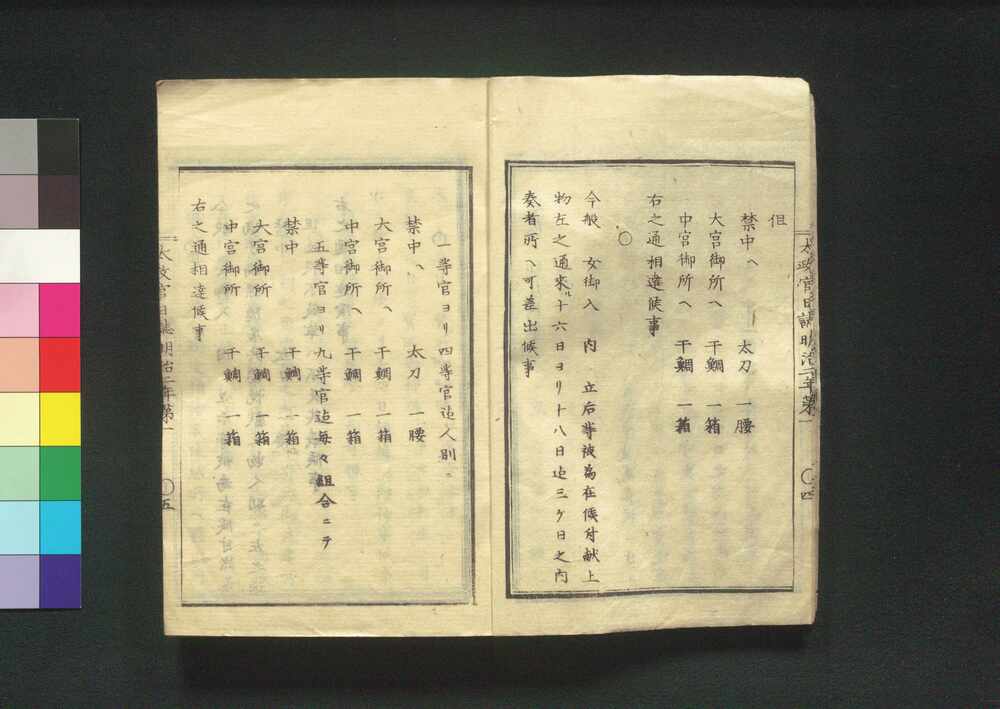 但
禁中ヘ 太刀 一腰
大宮御所ヘ 干鯛 一箱
中宮御所ヘ 干鯛 一箱
右之通相違候事
〇
今般 女御入 内 立后等被為在候付献上
物左之通来ル十六日ヨリ十八日迄三ケ日之内
奏者所ヘ可差出候事
太政官日誌明治二年第一 〇四
一等官ヨリ四等官迄人別ニ
禁中ヘ 太刀 一腰
大宮御所ヘ 干鯛 一箱
中宮御所ヘ 干鯛 一箱
五等官ヨリ九等官迄毎々組合ニテ
禁中 干鯛 一箱
大宮御所 干鯛 一箱
中宮御所 干鯛 一箱
右之通相達候事
太政官日誌明治二年第一 〇五